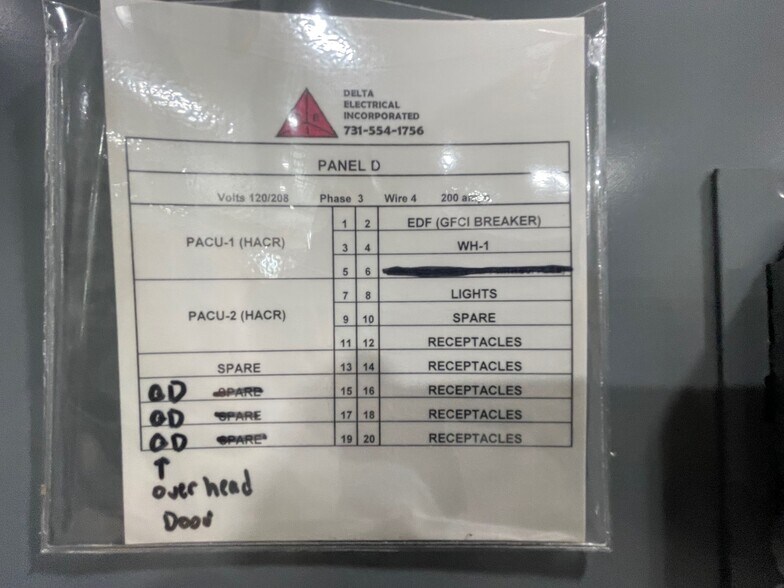 DELTA
ELECTRICAL
INCORPORATED
731-554-1756
PANEL D
Volts 120/208 Phase 3 Wire 4 200
PACU-1 (HACR) 1 2 EDF (GFCI BREAKER)
3 4 WH-1
5 6
PACU-2 (HACR) 7 8 LIGHTS
9 10 SPARE
11 12 RECEPTACLES
SPARE 13 14 RECEPTACLES
OD SPARE 15 16 RECEPTACLES
OD SPARE 17 18 RECEPTACLES
OD SPARE 19 20 RECEPTACLES
↑
over head
Door